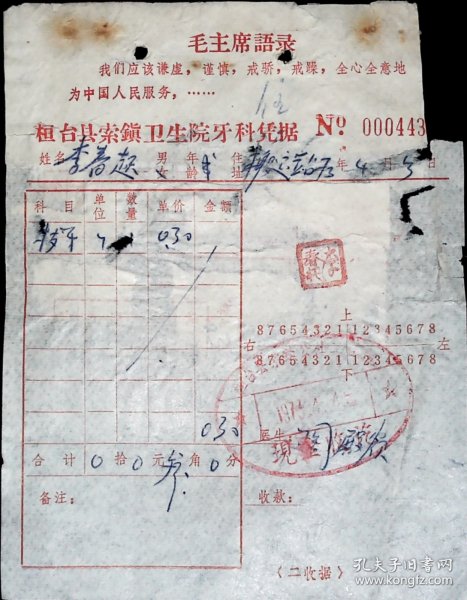 毛主席語录
我们应该谦虚，谨慎，戒骄，戒躁，全心全意地
为中国人民服务，……
桓台县索鎮卫生院牙科凭据 № 000443
姓名 李 男女 年龄 住址 年 4 月 5 日
科目 单位 数量 单价 金额
拔牙 0.30
上
87654321 12345678
右 左
87654321 12345678
下
0.30
医生
現金
合计 0 拾 0 元 叁 角 0 分
备注：
收款：
〈二收据〉
孔夫子旧书网
www.kongfz.com